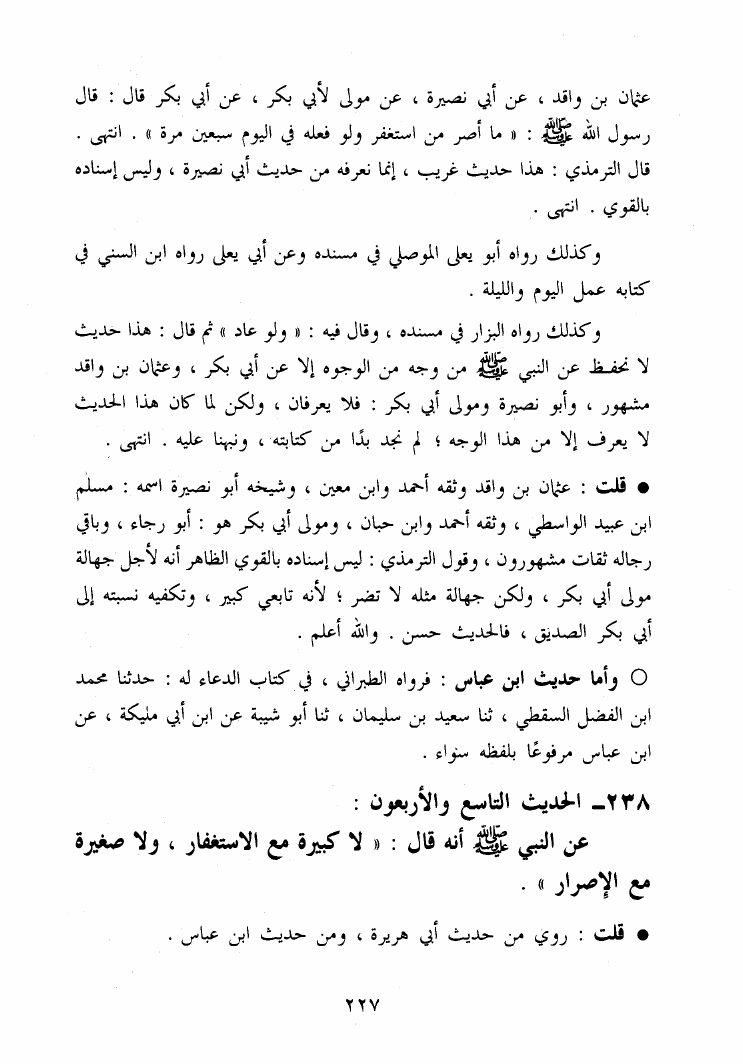 عثمان بن واقد ، عن أبي نصيرة ، عن مولى لأبي بكر ، عن أبي بكر قال : قال
رسول الله ﷺ : « ما أصر من استغفر ولو فعله في اليوم سبعين مرة » . انتهى .
قال الترمذي : هذا حديث غريب ، إنما نعرفه من حديث أبي نصيرة ، وليس إسناده
بالقوي . انتهى .
وكذلك رواه أبو يعلى الموصلي في مسنده وعن أبي يعلى رواه ابن السني في
كتابه عمل اليوم والليلة .
وكذلك رواه البزار في مسنده ، وقال فيه : « ولو عاد » ثم قال : هذا حديث
لا نحفظ عن النبي ﷺ من وجه من الوجوه إلا عن أبي بكر ، وعثمان بن واقد
مشهور ، وأبو نصيرة ومولى أبي بكر : فلا يعرفان ، ولكن لما كان هذا الحديث
لا يعرف إلا من هذا الوجه ؛ لم نجد بدًا من كتابته ، ونبهنا عليه . انتهى .
● قلت : عثمان بن واقد وثقه أحمد وابن معين ، وشيخه أبو نصيرة اسمه : مسلم
ابن عبيد الواسطي ، وثقه أحمد وابن حبان ، ومولى أبي بكر هو : أبو رجاء ، وباقي
رجاله ثقات مشهورون ، وقول الترمذي : ليس إسناده بالقوي الظاهر أنه لأجل جهالة
مولى أبي بكر ، ولكن جهالة مثله لا تضر ؛ لأنه تابعي كبير ، وتكفيه نسبته إلى
أبي بكر الصديق ، فالحديث حسن . والله أعلم .
○ وأما حديث ابن عباس : فرواه الطبراني ، في كتاب الدعاء له : حدثنا محمد
ابن الفضل السقطي ، ثنا سعيد بن سليمان ، ثنا أبو شيبة عن ابن أبي مليكة ، عن
ابن عباس مرفوعًا بلفظه سواء .
٢٣٨ـ الحديث التاسع والأربعون :
عن النبي ﷺ أنه قال : « لا كبيرة مع الاستغفار ، ولا صغيرة
مع الإصرار » .
● قلت : روي من حديث أبي هريرة ، ومن حديث ابن عباس .
٢٢٧